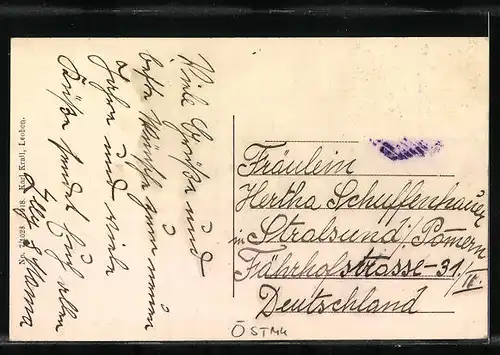 Viele Grüße und
beste Wünsche zum neuen
Jahre und viele
Küße sendet Euch allen
Elly & Mama
No. 72028 1918. Karl Krall, Leoben.
Fräulein
Hertha Schuffenhauer
in Stralsund/Pomern
Fährhofstrasse-31/II.
Deutschland
ÖSTMK